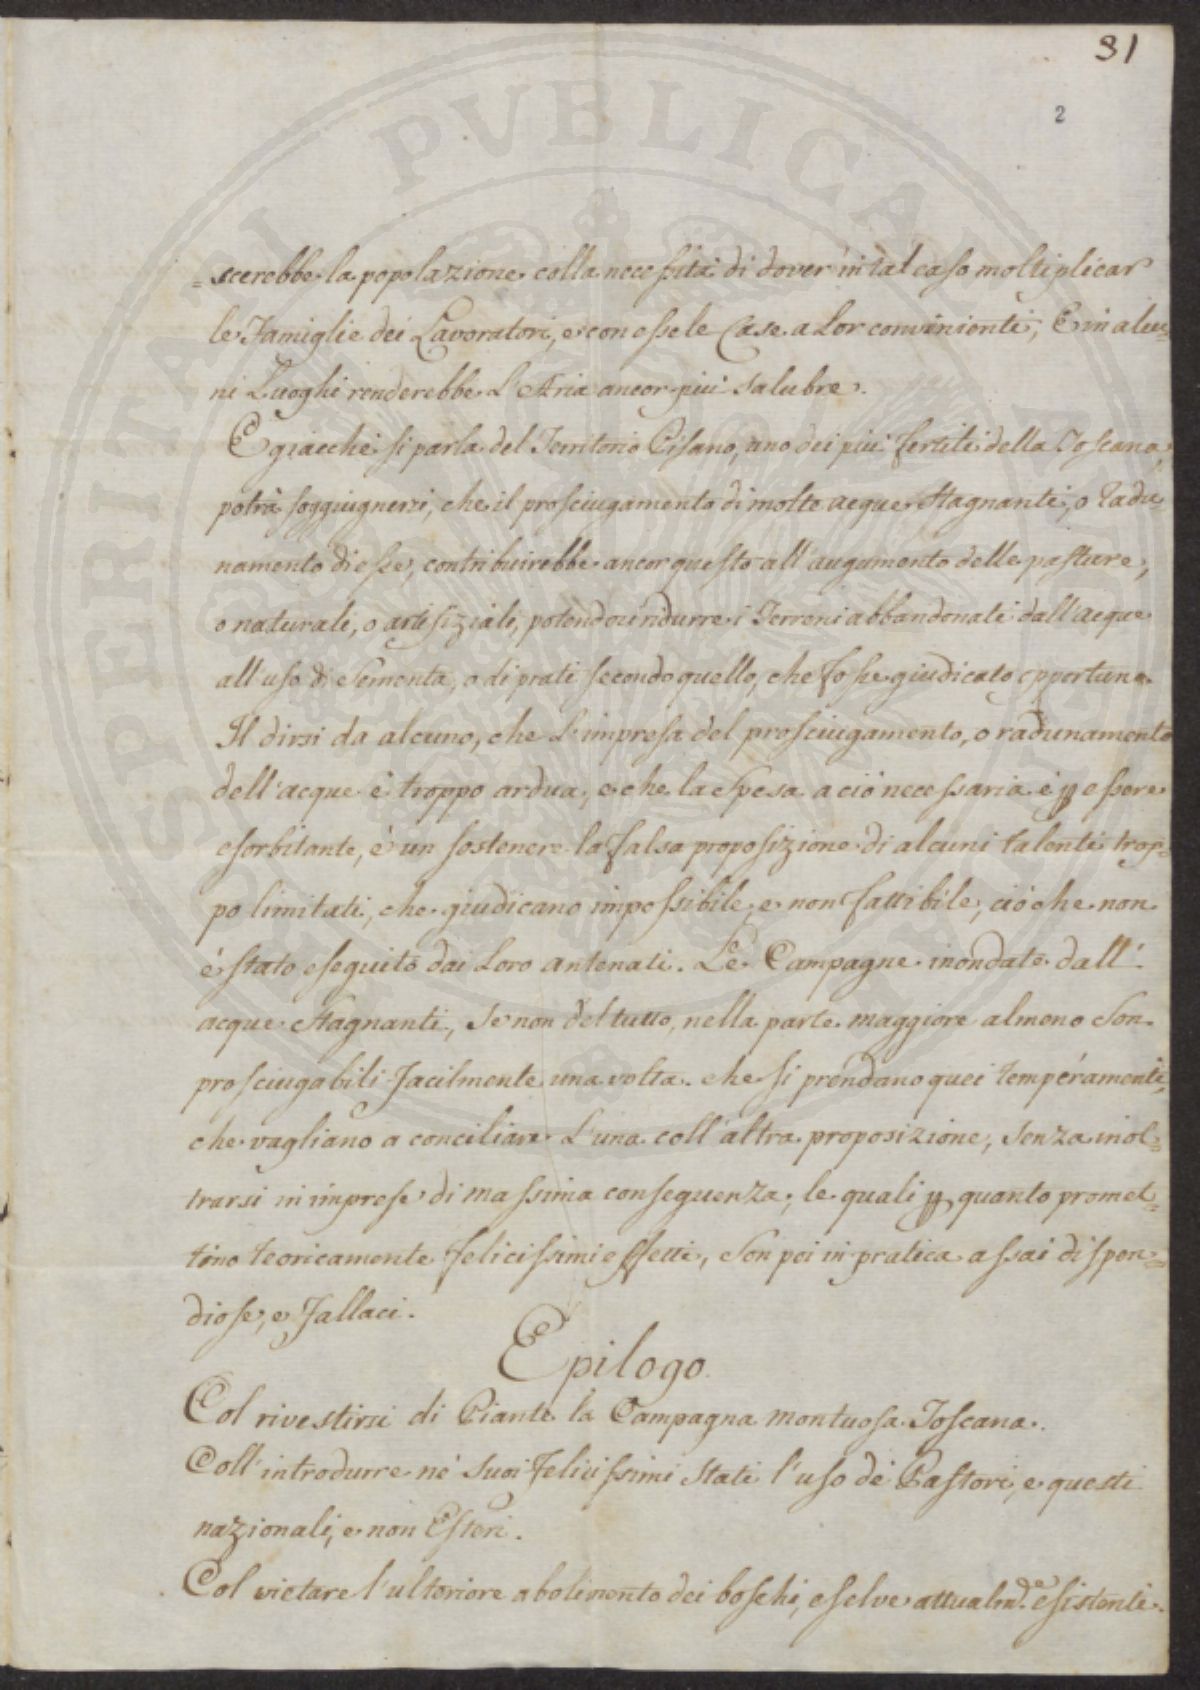 31
2
=scerebbe la popolazione colla necessità di dover in tal caso moltiplicar
le Famiglie dei Lavoratori, e con esse le Case a Lor convinienti, E in alcu=
ni Luoghi renderebbe L'Aria ancor più salubre.
E giacchè si parla del Territorio Pisano, uno dei più fertili della Toscana,
potrà soggiugnersi, che il prosciugamento di molte acque stagnanti, o radu=
namento di esse, contribuirebbe ancor questo all'augumento delle pasture,
o naturali, o artifiziali, potendo ridurre i Terreni abbandonati dall'acque
all'uso di Sementa, o di prati secondo quello, che fosse giudicato opportuno.
Il dirsi da alcuno, che L'impresa del prosciugamento, o radunamento
dell'acque è troppo ardua, e che la Spesa a ciò necessaria è p essere
esorbitante, è un sostenere la falsa proposizione di alcuni talenti trop=
po limitati, che giudicano impossibile, e non fattibile, ciò che non
è stato eseguito dai Loro antenati. Le Campagne inondate dall'
acque stagnanti, se non del tutto, nella parte maggiore almeno Son
prosciugabili facilmente una volta che si prendano quei temperamenti,
che vagliano a conciliare L'una coll'altra proposizione, senza inol=
trarsi in imprese di massima conseguenza; le quali p quanto promet=
tino teoricamente felicissimi effetti, Son poi in pratica assai dispen=
diose, e fallaci.
Epilogo
Col rivestirsi di Piante la Campagna montuosa Toscana.
Coll'introdurre ne' suoi felicissimi Stati l'uso de' Pastori, e questi
nazionali, e non Esteri.
Col vietare l'ulteriore abolimento dei boschi, e selve attualm.de esistenti.
PERITATI PVBLICAE